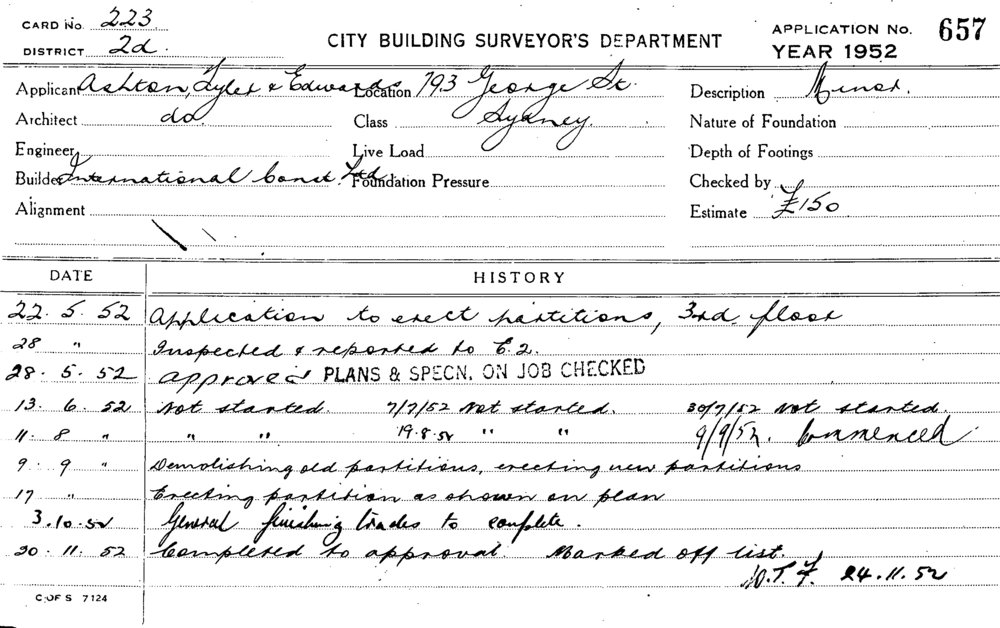 CARD No. 223.
DISTRICT 2d.
CITY BUILDING SURVEYOR'S DEPARTMENT
APPLICATION No. 657
YEAR 1952
Applicant Ashton, Tyler & Edwards Location 793 George St. Description Minor.
Architect do Class Sydney. Nature of Foundation
Engineer Live Load Depth of Footings
Builder International Const. Ltd. Foundation Pressure Checked by
Alignment Estimate £150
DATE HISTORY
22. 5. 52 Application to erect partitions, 3rd. floor
28 " Inspected & reported to E.2.
28. 5. 52 approved PLANS & SPECN. ON JOB CHECKED
13. 6. 52 Not started. 7/7/52 Not started. 30/7/52 Not started.
11. 8 " " " 19.8.52 " " 9/9/52. Commenced
9. 9 " Demolishing old partitions, erecting new partitions
17 " Erecting partition as shown on plan
3.10.52 General finishing trades to complete.
20. 11. 52 Completed to approval Marked off list.
24.11.52
C OF S 7124